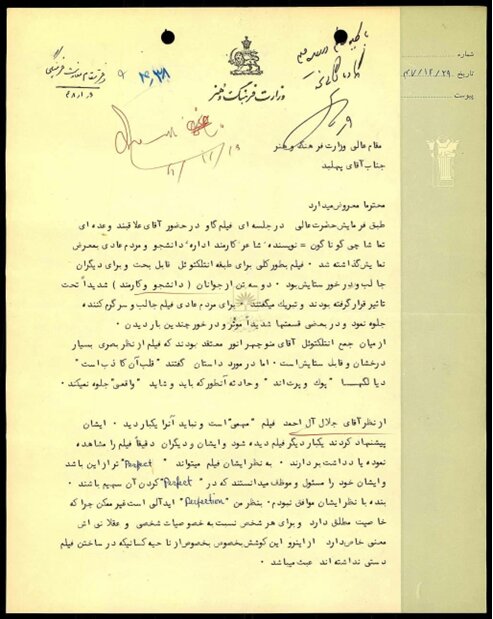 شماره
تاریخ ۴۷/۱۲/۲۹
پیوست
۴۰۳۸
وزارت فرهنگ و هنر
مقام عالی وزارت فرهنگ و هنر
جناب آقای پهلبد
محترما معروض میدارد
طبق فرمایش حضرت عالی در جلسه ای فیلم گاو در حضور آقای علاقبند وعده ای
تماشاچی گوناگون = نویسنده، شاعر کارمند اداره، دانشجو و مردم عادی بمعرض
نمایش گذاشته شد . فیلم بطور کلی برای طبقه انتلکتوئل قابل بحث و برای دیگران
جالب و در خور ستایش بود . دو سه تن از جوانان ( دانشجو و کارمند ) شدیداً تحت
تاثیر قرار گرفته بودند و تبریک میگفتند . برای مردم عادی فیلم جالب و سرگرم کننده
جلوه نمود و در بعضی قسمتها شدیداً موثر و در خور چندین بار دیدن .
از میان جمع انتلکتوئل آقای منوچهر انور معتقد بودند که فیلم از نظر بصری بسیار
درخشان و قابل ستایش است . اما در مورد داستان گفتند " قلب آن کاذب است "
دیالگهـا " پوک و پرت اند " و حادثه آنطور که باید و شاید " واقعی" جلوه نمیکند .
از نظر آقای جلال آل احمد فیلم " مهمی" است و نباید آنرا یکبار دید . ایشان
پیشنهاد کردند یکبار دیگر فیلم دیده شود و ایشان و دیگران دقیقاً فیلم را مشاهده
نموده یاد داشت بردارند . به نظر ایشان فیلم میتواند "Perfect" تر از این باشد
و ایشان خود را مسئول و موظف میدانستند که در "Perfect" کردن آن سهیم باشند .
بنده با نظر ایشان موافق نبودم . بنظر من "Perfection" ایدآلی است غیر ممکن چرا که
خاصیت مطلق دارد و برای هر شخص نسبت به خصوصیات شخصی و عقلانی اش
معنی خاص دارد از اینرو این کوشش بخصوص بخصوص از ناحیه کسانیکه در ساختن فیلم
دستی نداشته اند عبث میباشد .